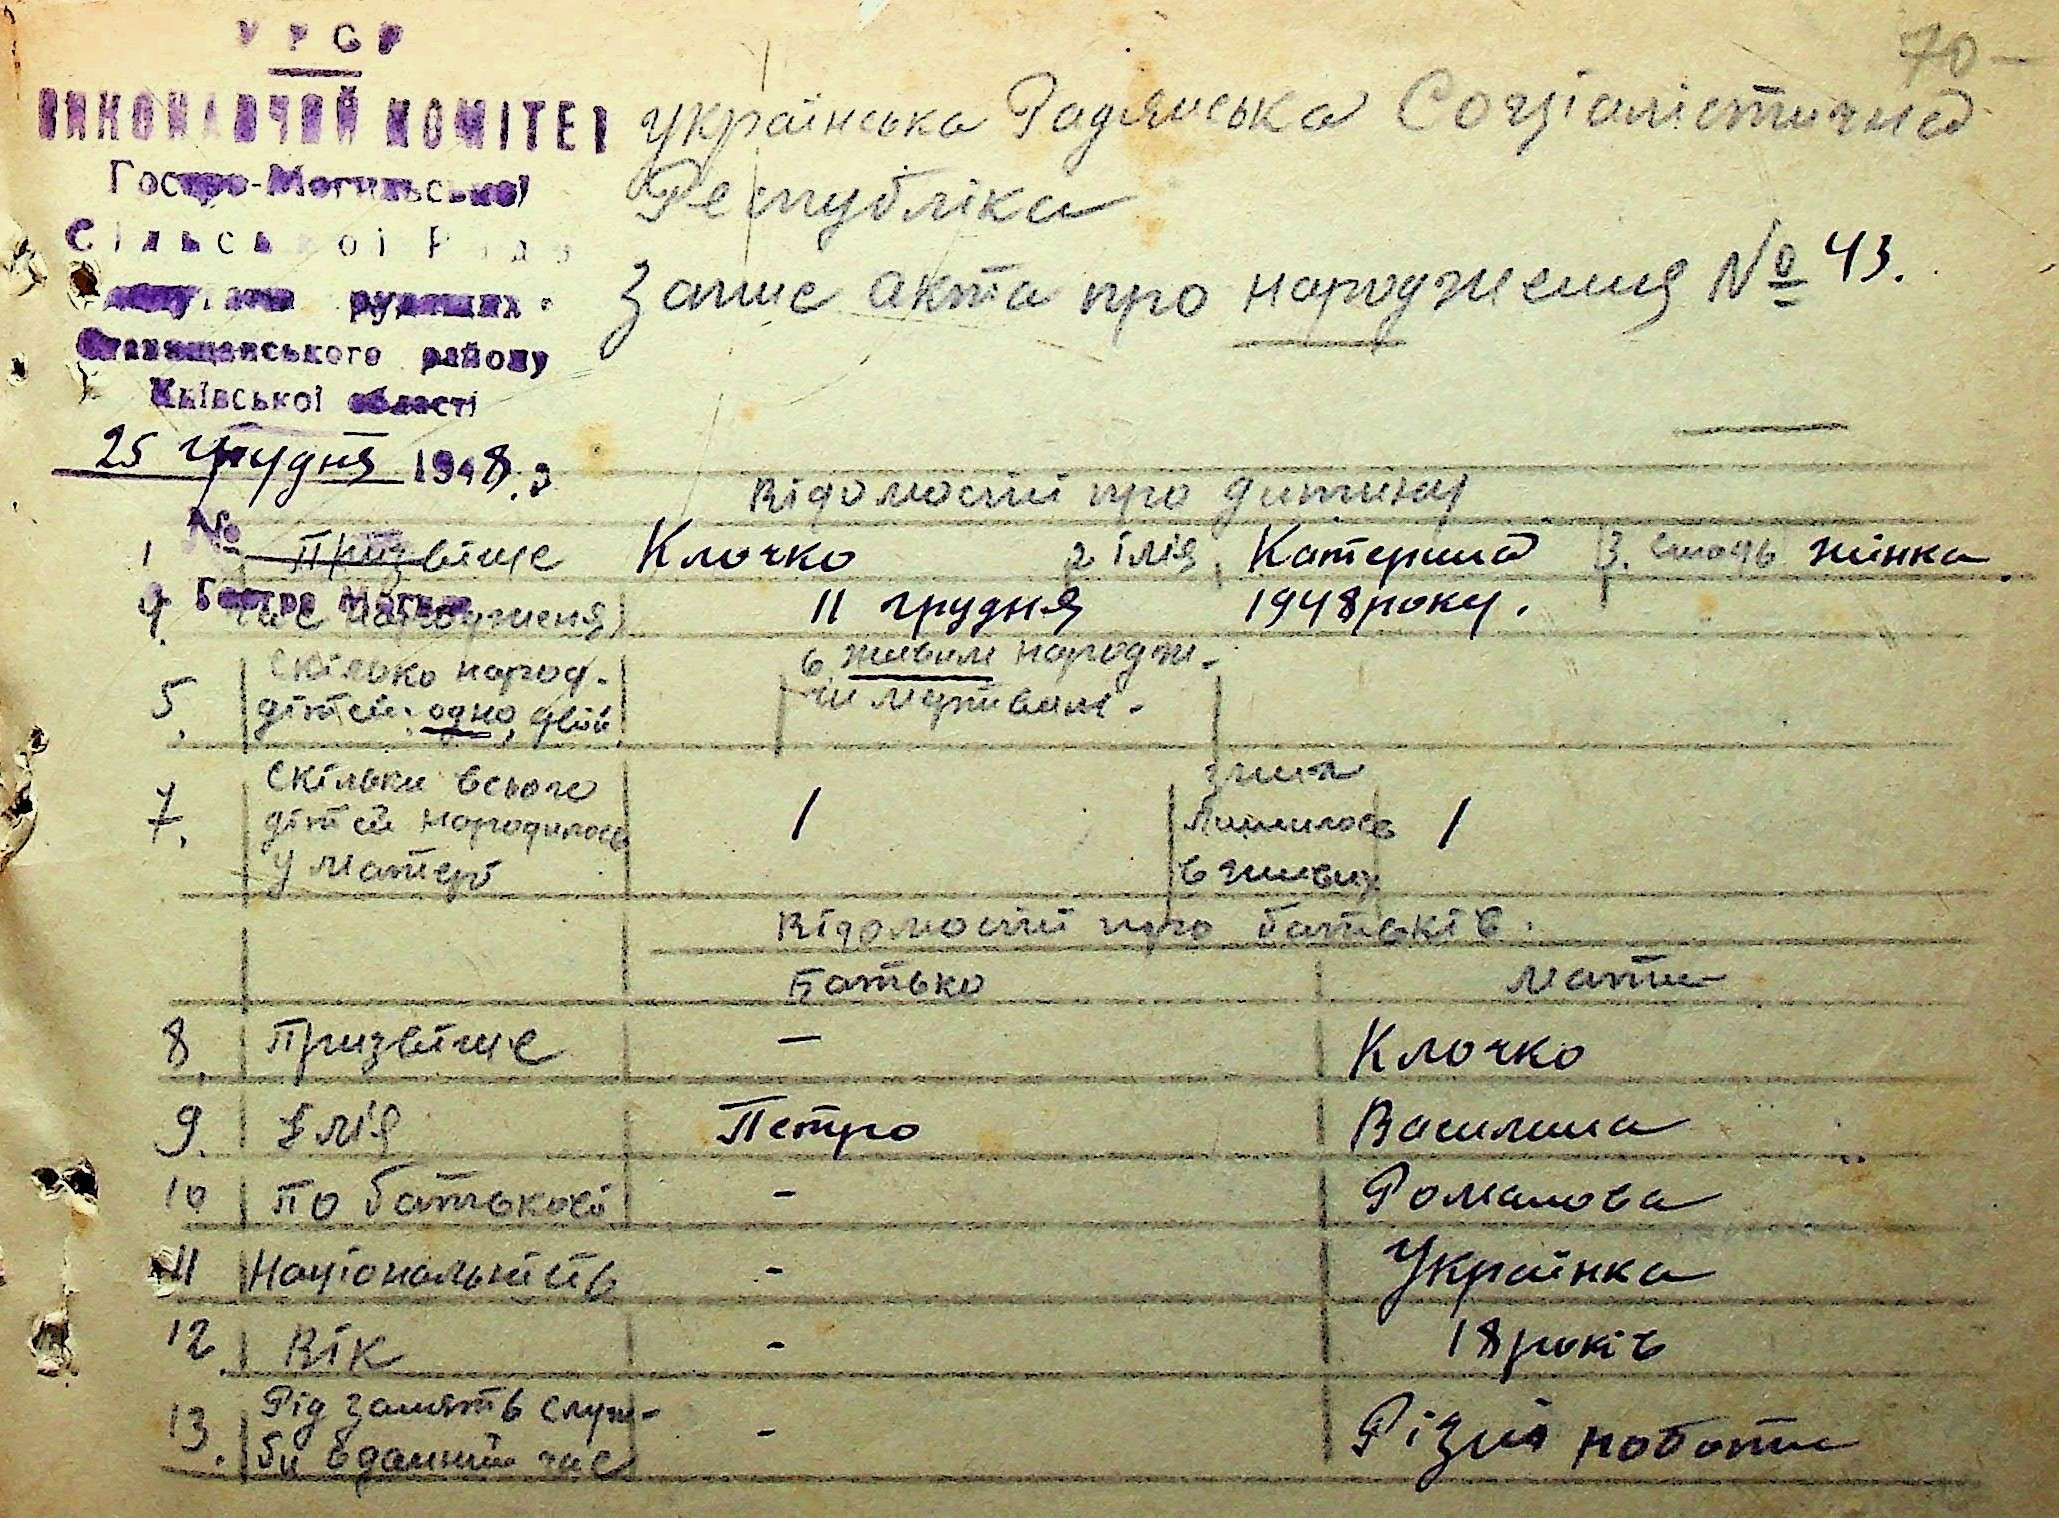 70
УРСР
ВИКОНАВЧИЙ КОМІТЕТ
Гостро-Могильської
Сільської Ради
депутатів трудящих
Ставищанського району
Київської області
25 грудня 1948 р
№
Гостра Могила
Українська Радянська Соціалістична
Республіка
Запис акта про народження № 43.
Відомостії про дитину
1 Призвіще Клочко 2 Імія Катерина 3. стать жінка
4. час народженя 11 грудня 1948 року.
5. Скілько народ. дітей: одно, двій 6 живим народж. чи мертвим.
7. Скільки всього дітей народилось у матері 1 з них лишилось в живих 1
Відомостії про батьків.
Батько Мати
8. Призвіще — Клочко
9. Імія Петро Василина
10 По батькові - Романова
11 Національність - Українка
12. Вік - 18 років
13. Рід занять служ- би в данний час - Різні роботи